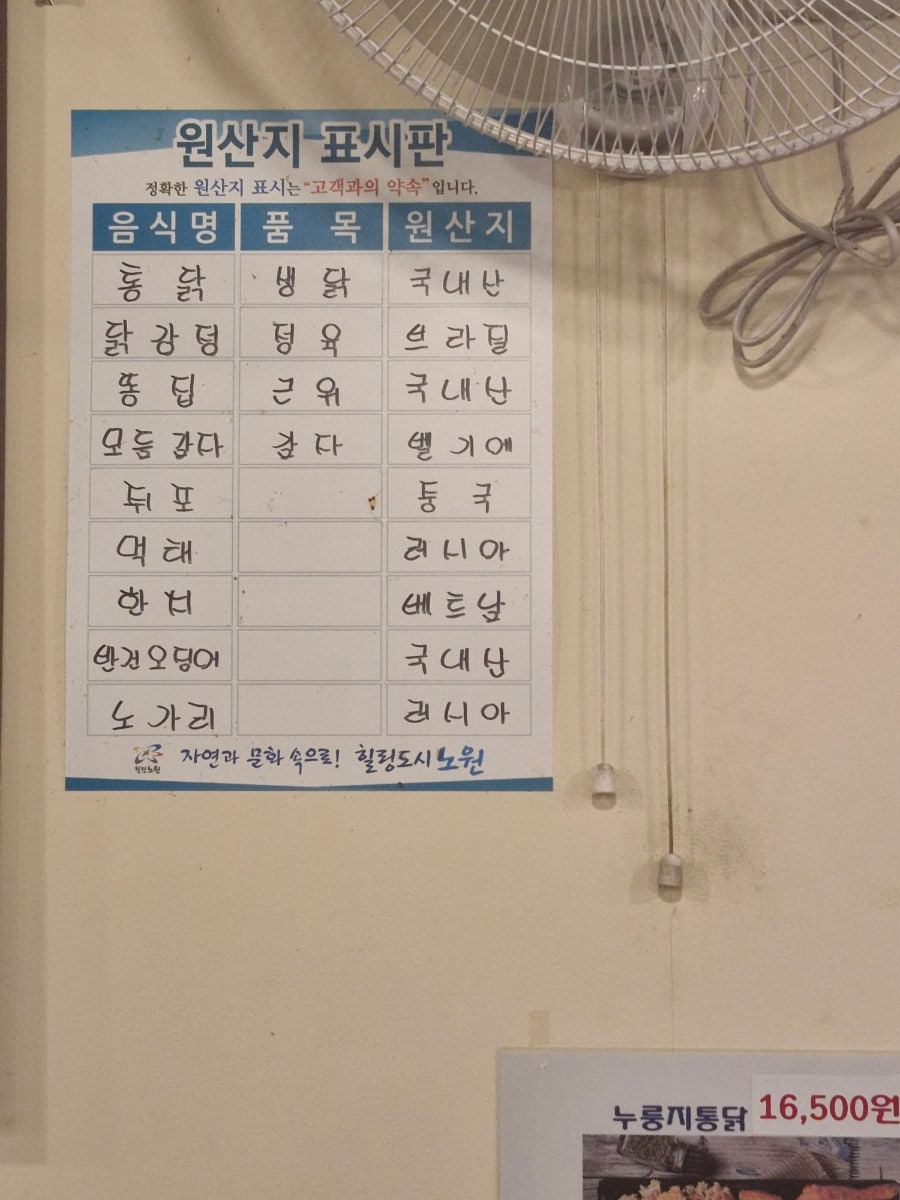 원산지 표시판
정확한 원산지 표시는 "고객과의 약속" 입니다.
음식명 품목 원산지
통닭 생닭 국내산
닭강정 정육 브라질
똥집 근위 국내산
모듬감자 감자 벨기에
쥐포 중국
먹태 러시아
한치 베트남
반건오징어 국내산
노가리 러시아
힐링노원 자연과 문화 속으로! 힐링도시 노원
누룽지통닭 16,500원